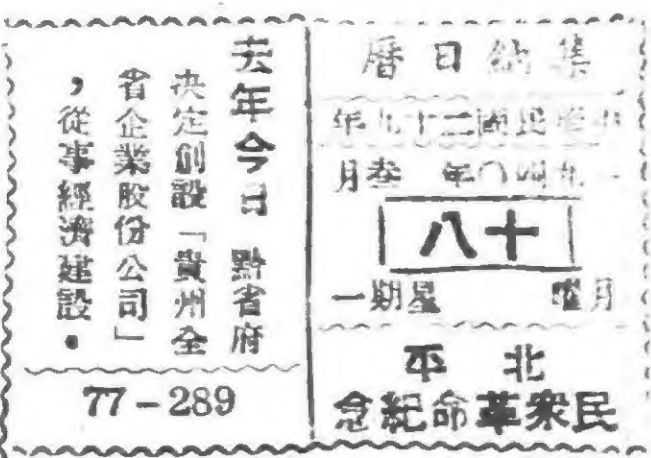 集納日曆
中華民國二十九年
一九四〇年 叁月
十八
月曜 星期一
北平
民衆革命紀念
去年今日 黔省府
決定創設「貴州全
省企業股份公司」
,從事經濟建設.
77-289